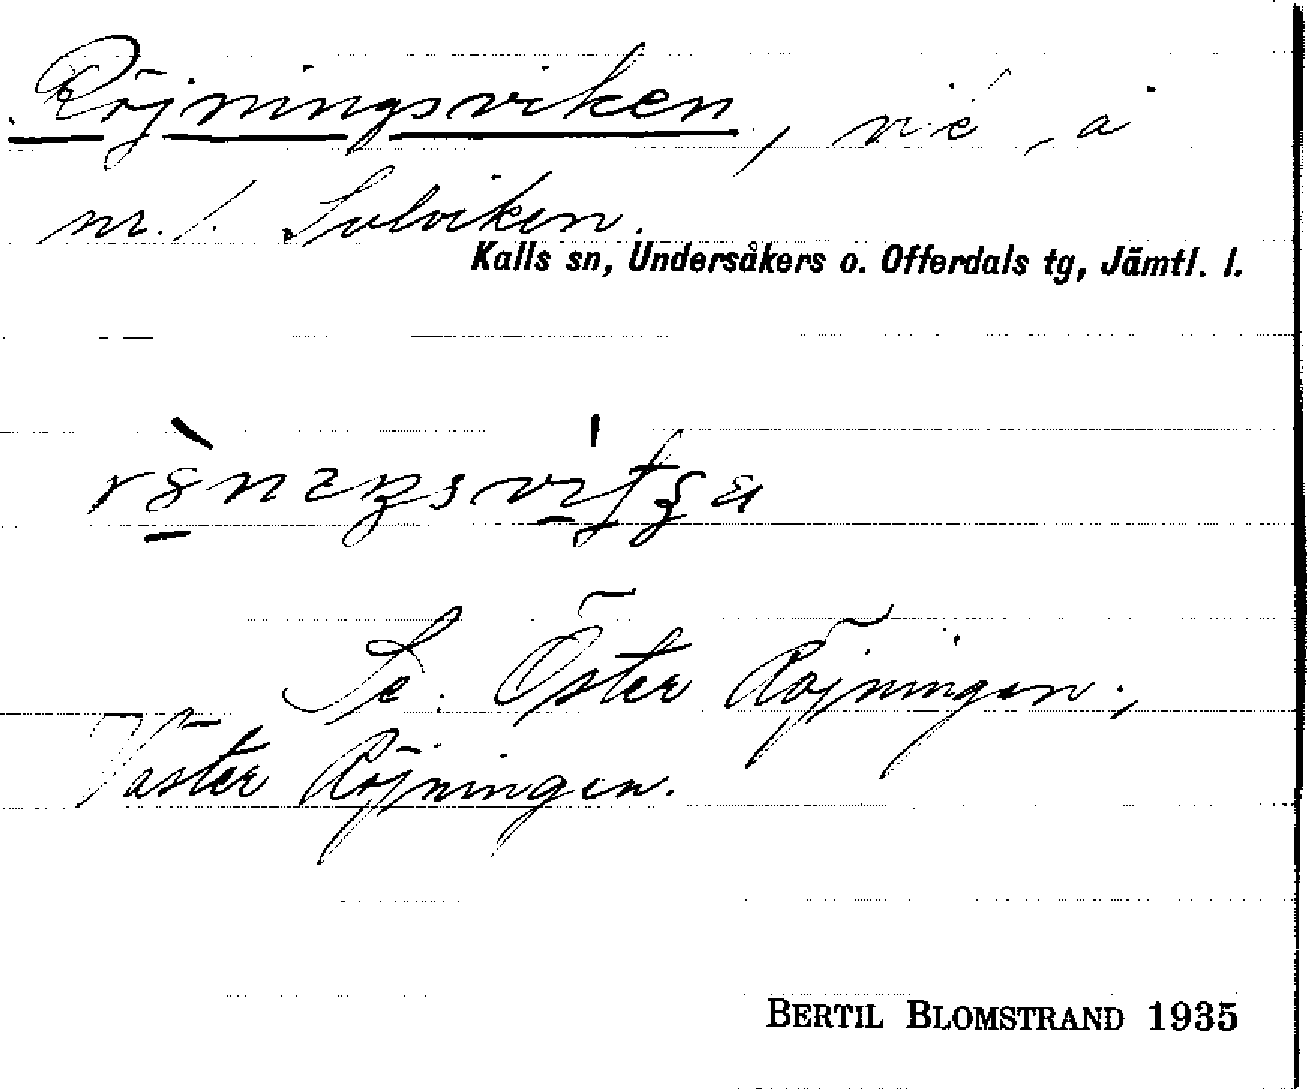 Röjningsviken, vid å
nr. 1. Solviken.
Kalls sn, Undersåkers o. Offerdals tg, Jämtl. l.
Se: Öster Röjningen,
Väster Röjningen.
BERTIL BLOMSTRAND 1935